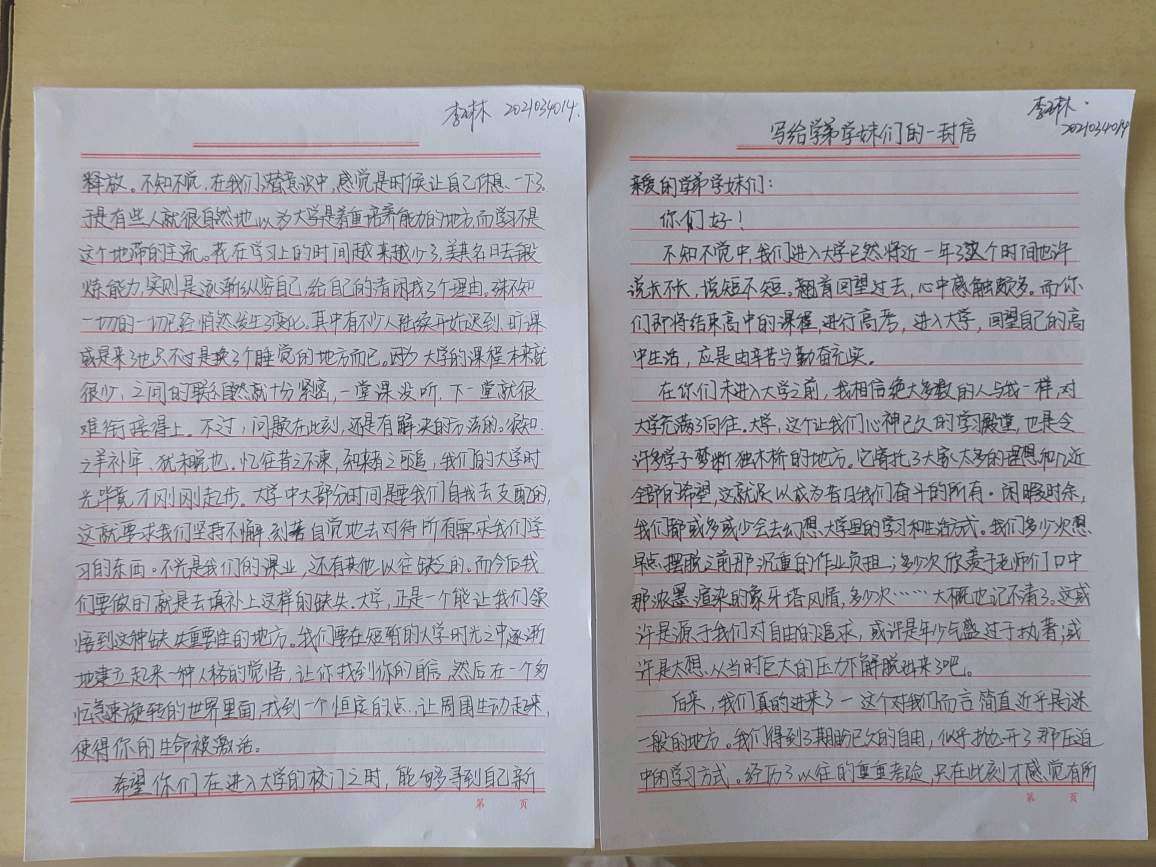 写给学弟学妹们的一封信
202103401
亲爱的学弟学妹们：
你们好！
不知不觉中，我们进入大学已然将近一年了这个时间也许
说长不长，说短不短。翘首回望过去，心中感触颇多。而你
们即将结束高中的课程，进行高考，进入大学，回望自己的高
中生活，应是由辛苦与勤奋充实。
在你们未进入大学之前，我相信绝大多数的人与我一样，对
大学充满了向往。大学，这个让我们心神已久的学习殿堂，也是令
许多学子梦断独木桥的地方。它寄托了大家太多的理想和几近
全部的希望，这就足以成为昔日我们奋斗的所有。闲暇时余，
我们都或多或少会去幻想大学里的学习和生活方式。我们多少次想
早点摆脱之前那沉重的作业负担，多少次欣羡于老师们口中
那浓墨渲染的象牙塔风情，多少次……大概也记不清了。这或
许是源于我们对自由的追求，或许是年少气盛过于执著；或
许是太想从当时巨大的压力下解脱出来了吧。
后来，我们真的进来了一这个对我们而言简直近乎是迷
一般的地方。我们得到了期盼已久的自由，似乎抛开了那压迫
中的学习方式。经历了以往的重重考验，只在此刻才感觉有所
2021034014
释放。不知不觉，在我们潜意识中，感觉是时候让自己休息一下了
于是有些人就很自然地以为大学是着重培养能力的地方而学习不是
这个地带的主流。花在学习上的时间越来越少了，美其名曰去锻
炼能力，实则是逐渐纵容自己，给自己的清闲找了个理由。殊不知
一切的一切已经悄然发生了变化。其中有不少人陆续开始迟到、旷课
或是来了也只不过是换了个睡觉的地方而已。因为大学的课程本来就
很少，之间的联系自然就十分紧密，一堂课没听，下一堂就很
难衔接得上。不过，问题在此刻，还是有解决的方法的。须知
亡羊补牢、犹未晚也。忆往昔之不谏，知来者之可追，我们的大学时
光毕竟才刚刚起步。大学中大部分时间是要我们自我去支配的，
这就要求我们坚持不懈 到着自觉地去对待所有需求我们学
习的东西。不光是我们的课业，还有其他以往缺乏的。而今后我
们要做的就是去填补上这样的缺失。大学，正是一个能让我们领
悟到这种缺失重要性的地方。我们要在短暂的大学时光之中逐渐
地建立起来一种人格的觉悟，让你找到你的自信，然后在一个匆
忙急速旋转的世界里面，找到一个恒定的点，让周围生动起来，
使得你的生命被激活。
希望你们在进入大学的校门之时，能够寻到自己新
第 页
第 页